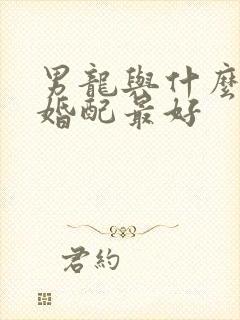 男龍與什麼
婚配最好
君約